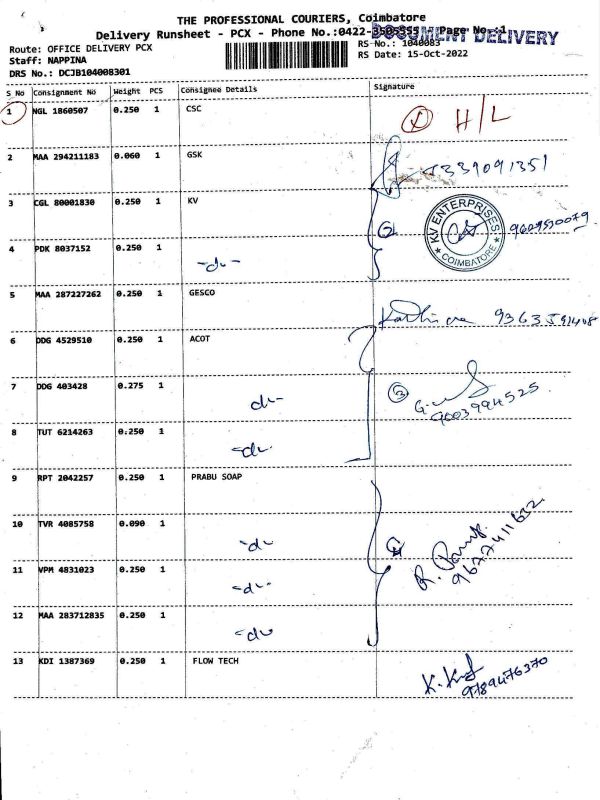 THE PROFESSIONAL COURIERS, Coimbatore
Delivery Runsheet - PCX - Phone No.:0422-3505555 Page No.:1
DOCUMENT DELIVERY
Route: OFFICE DELIVERY PCX
RS No.: 1040083
Staff: NAPPINA
RS Date: 15-Oct-2022
DRS No.: DCJB104008301
S No Consignment No Weight PCS Consignee Details Signature
1 NGL 1860507 0.250 1 CSC H/L
2 MAA 294211183 0.060 1 GSK
3 CGL 80001830 0.250 1 KV KV ENTERPRISES COIMBATORE
4 PDK 8037152 0.250 1 -do-
5 MAA 287227262 0.250 1 GESCO
6 DDG 4529510 0.250 1 ACOT
7 DDG 403428 0.275 1 do- 3 9003994525
8 TUT 6214263 0.250 1 -do-
9 RPT 2042257 0.250 1 PRABU SOAP
10 TVR 4085758 0.090 1 -do- 9677411632
11 VPM 4831023 0.250 1 -do-
12 MAA 283712835 0.250 1 -do
13 KDI 1387369 0.250 1 FLOW TECH 9789476370